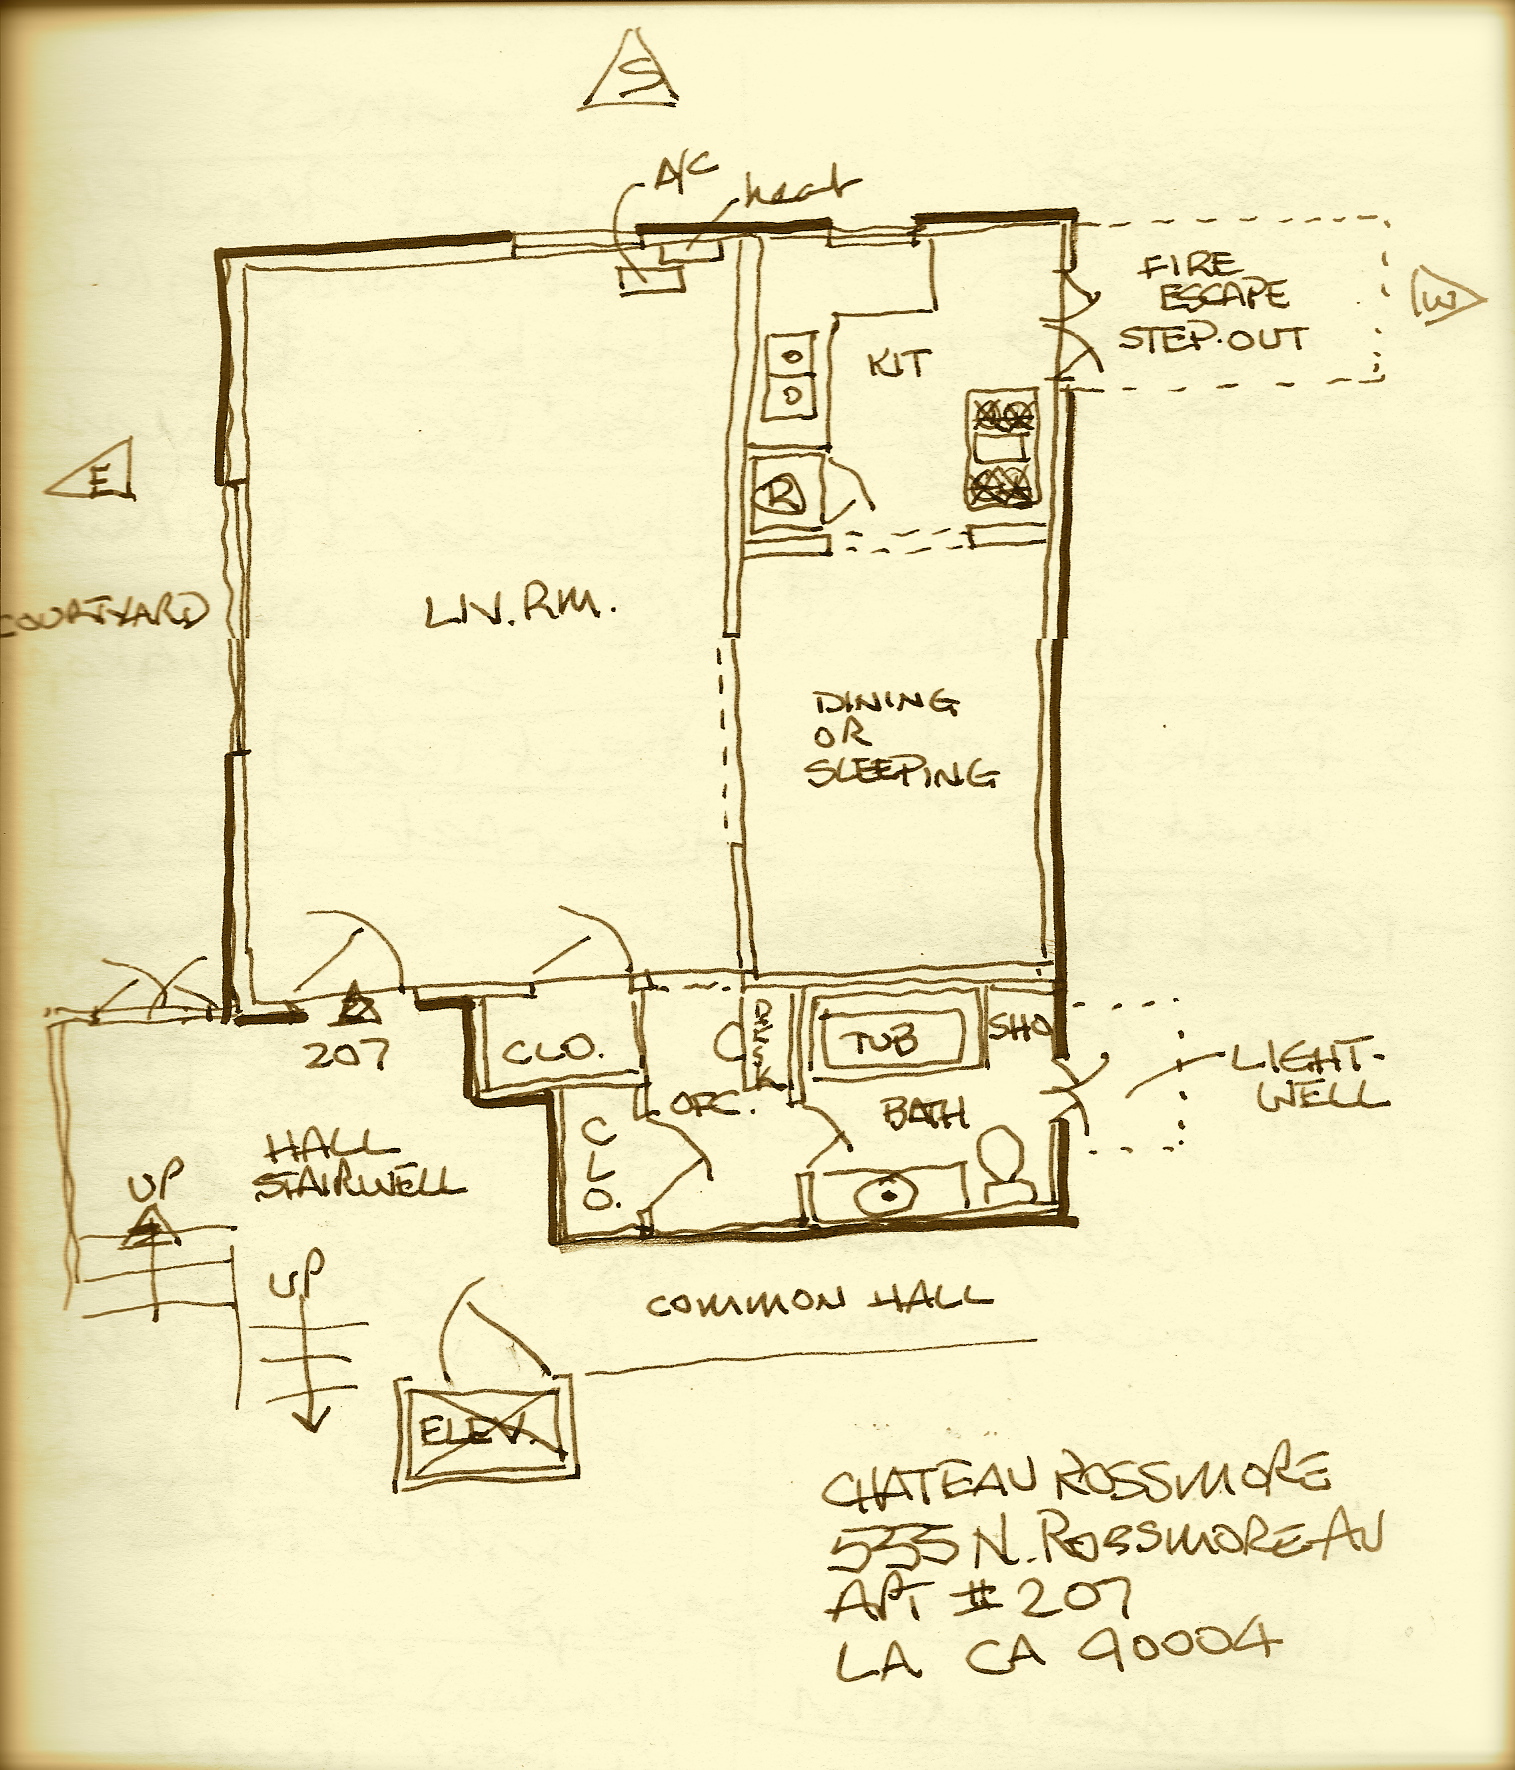 S
A/C
heat
FIRE
ESCAPE
STEP·OUT
W
KIT
E
R
COURTYARD
LIV. RM.
DINING
OR
SLEEPING
207
CLO.
DESK
TUB
SHO
LIGHT-
WELL
OFC.
BATH
CLO.
HALL
STAIRWELL
UP
UP
COMMON HALL
ELEV.
CHATEAU ROSSMORE
555 N. ROSSMORE AV
APT # 207
LA CA 90004